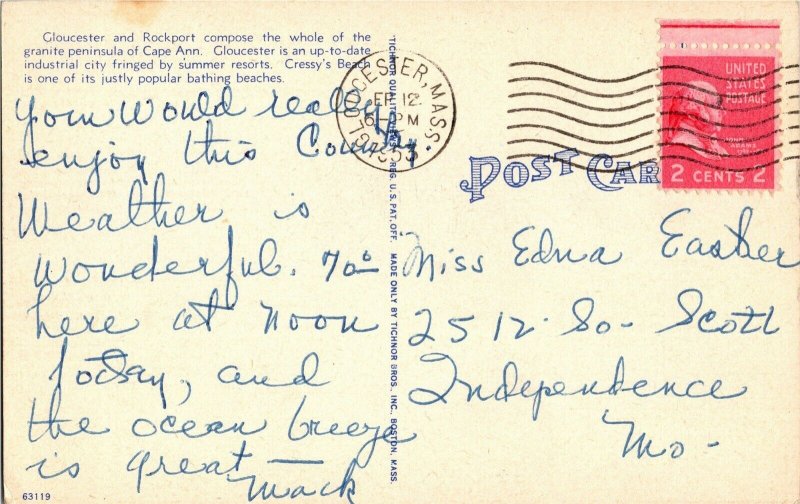 Gloucester and Rockport compose the whole of the
granite peninsula of Cape Ann. Gloucester is an up-to-date
industrial city fringed by summer resorts. Cressy's Beach
is one of its justly popular bathing beaches.
You would really
enjoy this Country
Weather is
wonderful. 70°
here at noon
today, and
the ocean breeze
is great—
Mack
63119
MADE ONLY BY TICHNOR BROS. INC., BOSTON, MASS.
GLOUCESTER, MASS.
SEP 12
6-PM
1953
POST CAR
UNITED
STATES
POSTAGE
JOHN
ADAMS
2 CENTS 2
Miss Edna Easher
2512 So- Scott
Independence
Mo-